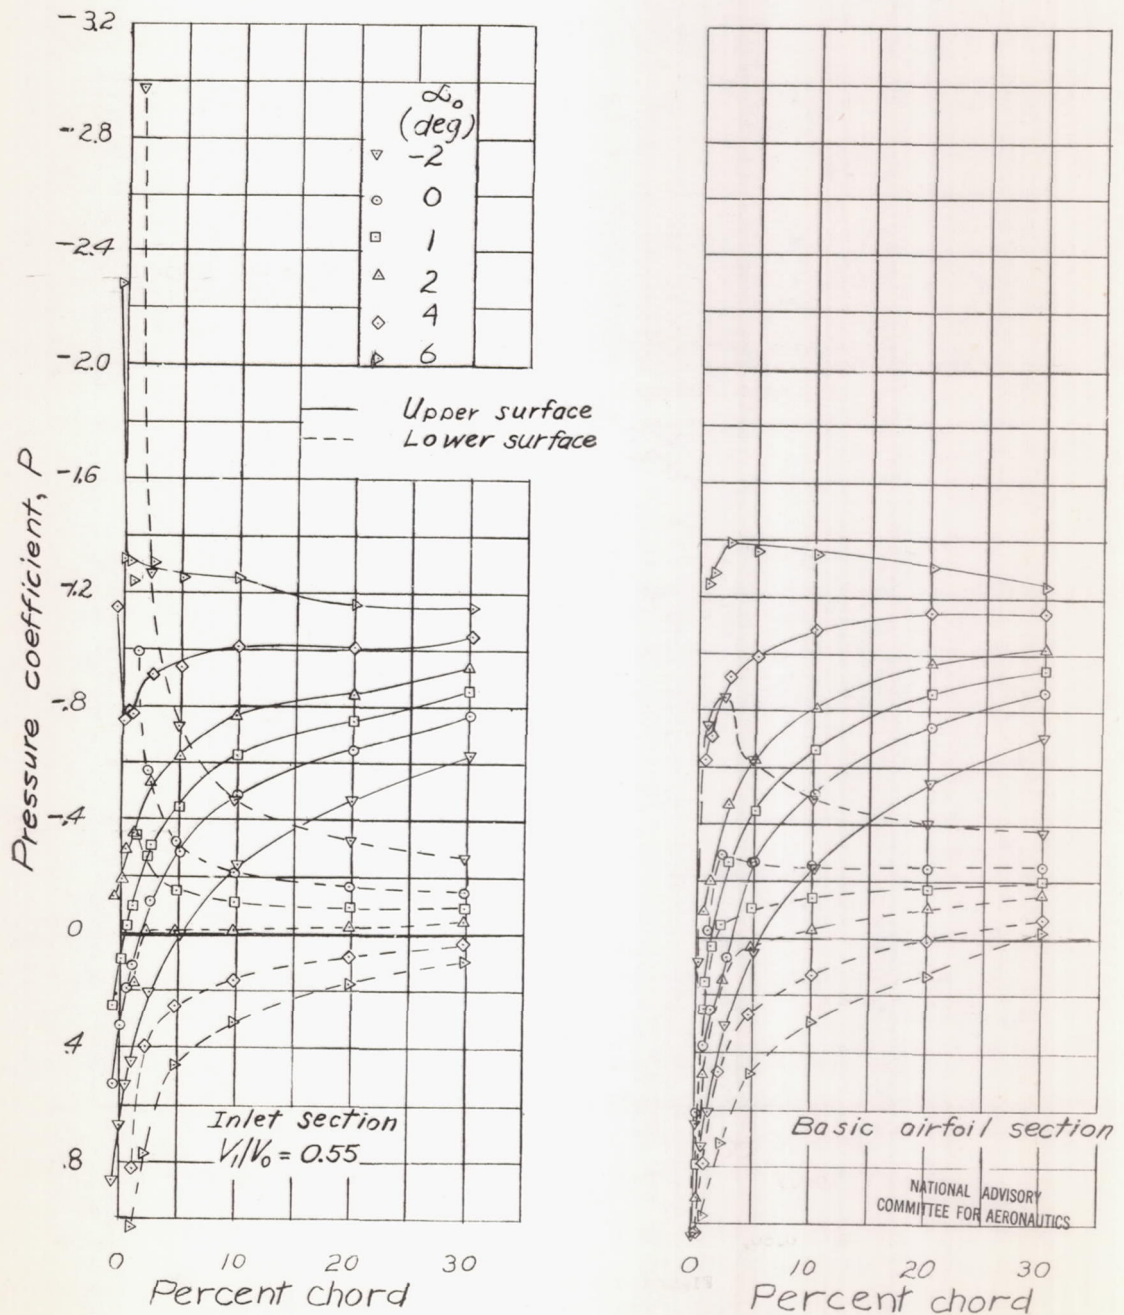 -3.2
-2.8
-2.4
-2.0
-1.6
-1.2
-.8
-.4
0
.4
.8
Pressure coefficient, P
α₀
(deg)
-2
0
1
2
4
6
Upper surface
Lower surface
Inlet section
V₁/V₀ = 0.55
0 10 20 30
Percent chord
Basic airfoil section
NATIONAL ADVISORY
COMMITTEE FOR AERONAUTICS
0 10 20 30
Percent chord